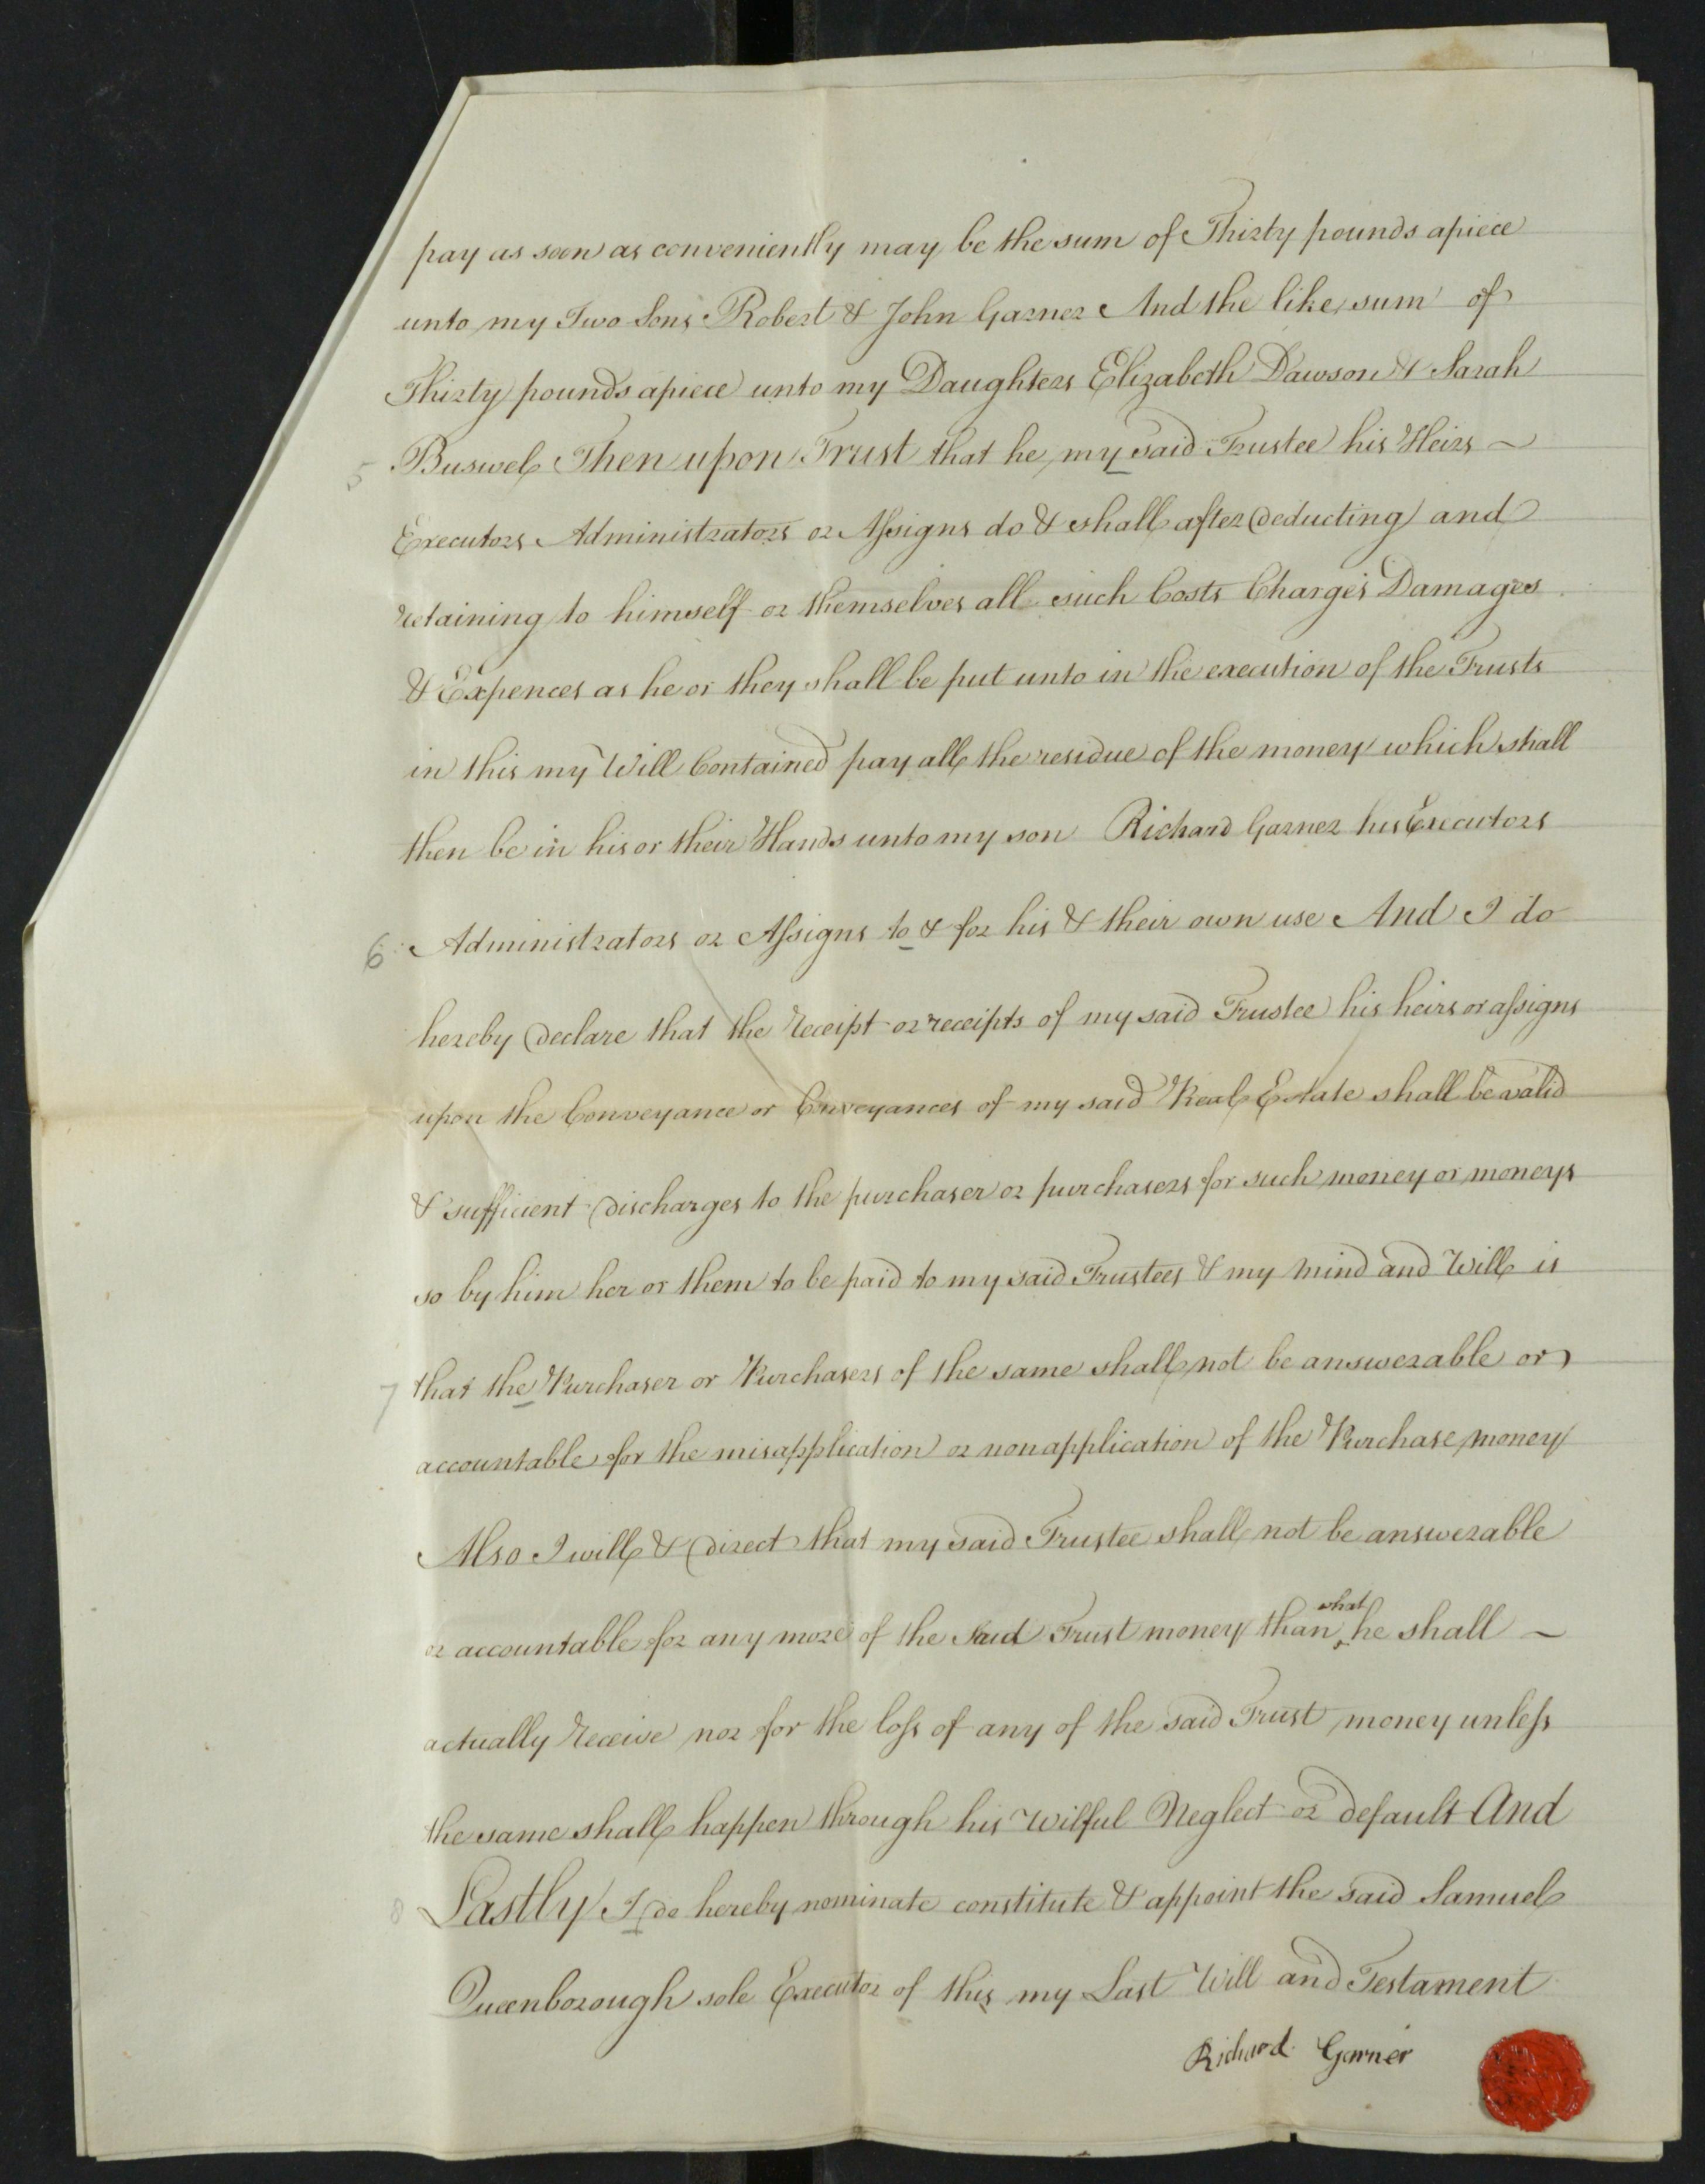 pay as soon as conveniently may be the sum of Thirty pounds apiece
unto my Two Sons Robert & John Garner And the like sum of
Thirty pounds apiece unto my Daughters Elizabeth Dawson & Sarah
5 Buswel Then upon Trust that he my said Trustee his Heirs ~
Executors Administrators or Assigns do & shall after deducting and
retaining to himself or themselves all such Costs Charges Damages
& Expences as he or they shall be put unto in the execution of the Trusts
in this my Will Contained pay all the residue of the money which shall
then be in his or their Hands unto my son Richard Garner his Executors
6 Administrators or Assigns to & for his & their own use And I do
hereby declare that the Receipt or receipts of my said Trustee his heirs or assigns
upon the Conveyance or Conveyances of my said Real Estate shall be valid
& sufficient discharges to the purchaser or purchasers for such money or moneys
so by him her or them to be paid to my said Trustees & my mind and Will is
7 that the Purchaser or Purchasers of the same shall not be answerable or
accountable for the misapplication or nonapplication of the Purchase money
Also I will & direct that my said Trustee shall not be answerable
or accountable for any more of the Said Trust money than what he shall ~
actually Receive nor for the loss of any of the said Trust money unless
the same shall happen through his Wilful Neglect or default And
8 Lastly I do hereby nominate constitute & appoint the said Samuel
Queenborough sole Executor of this my Last Will and Testament
Richard Garner